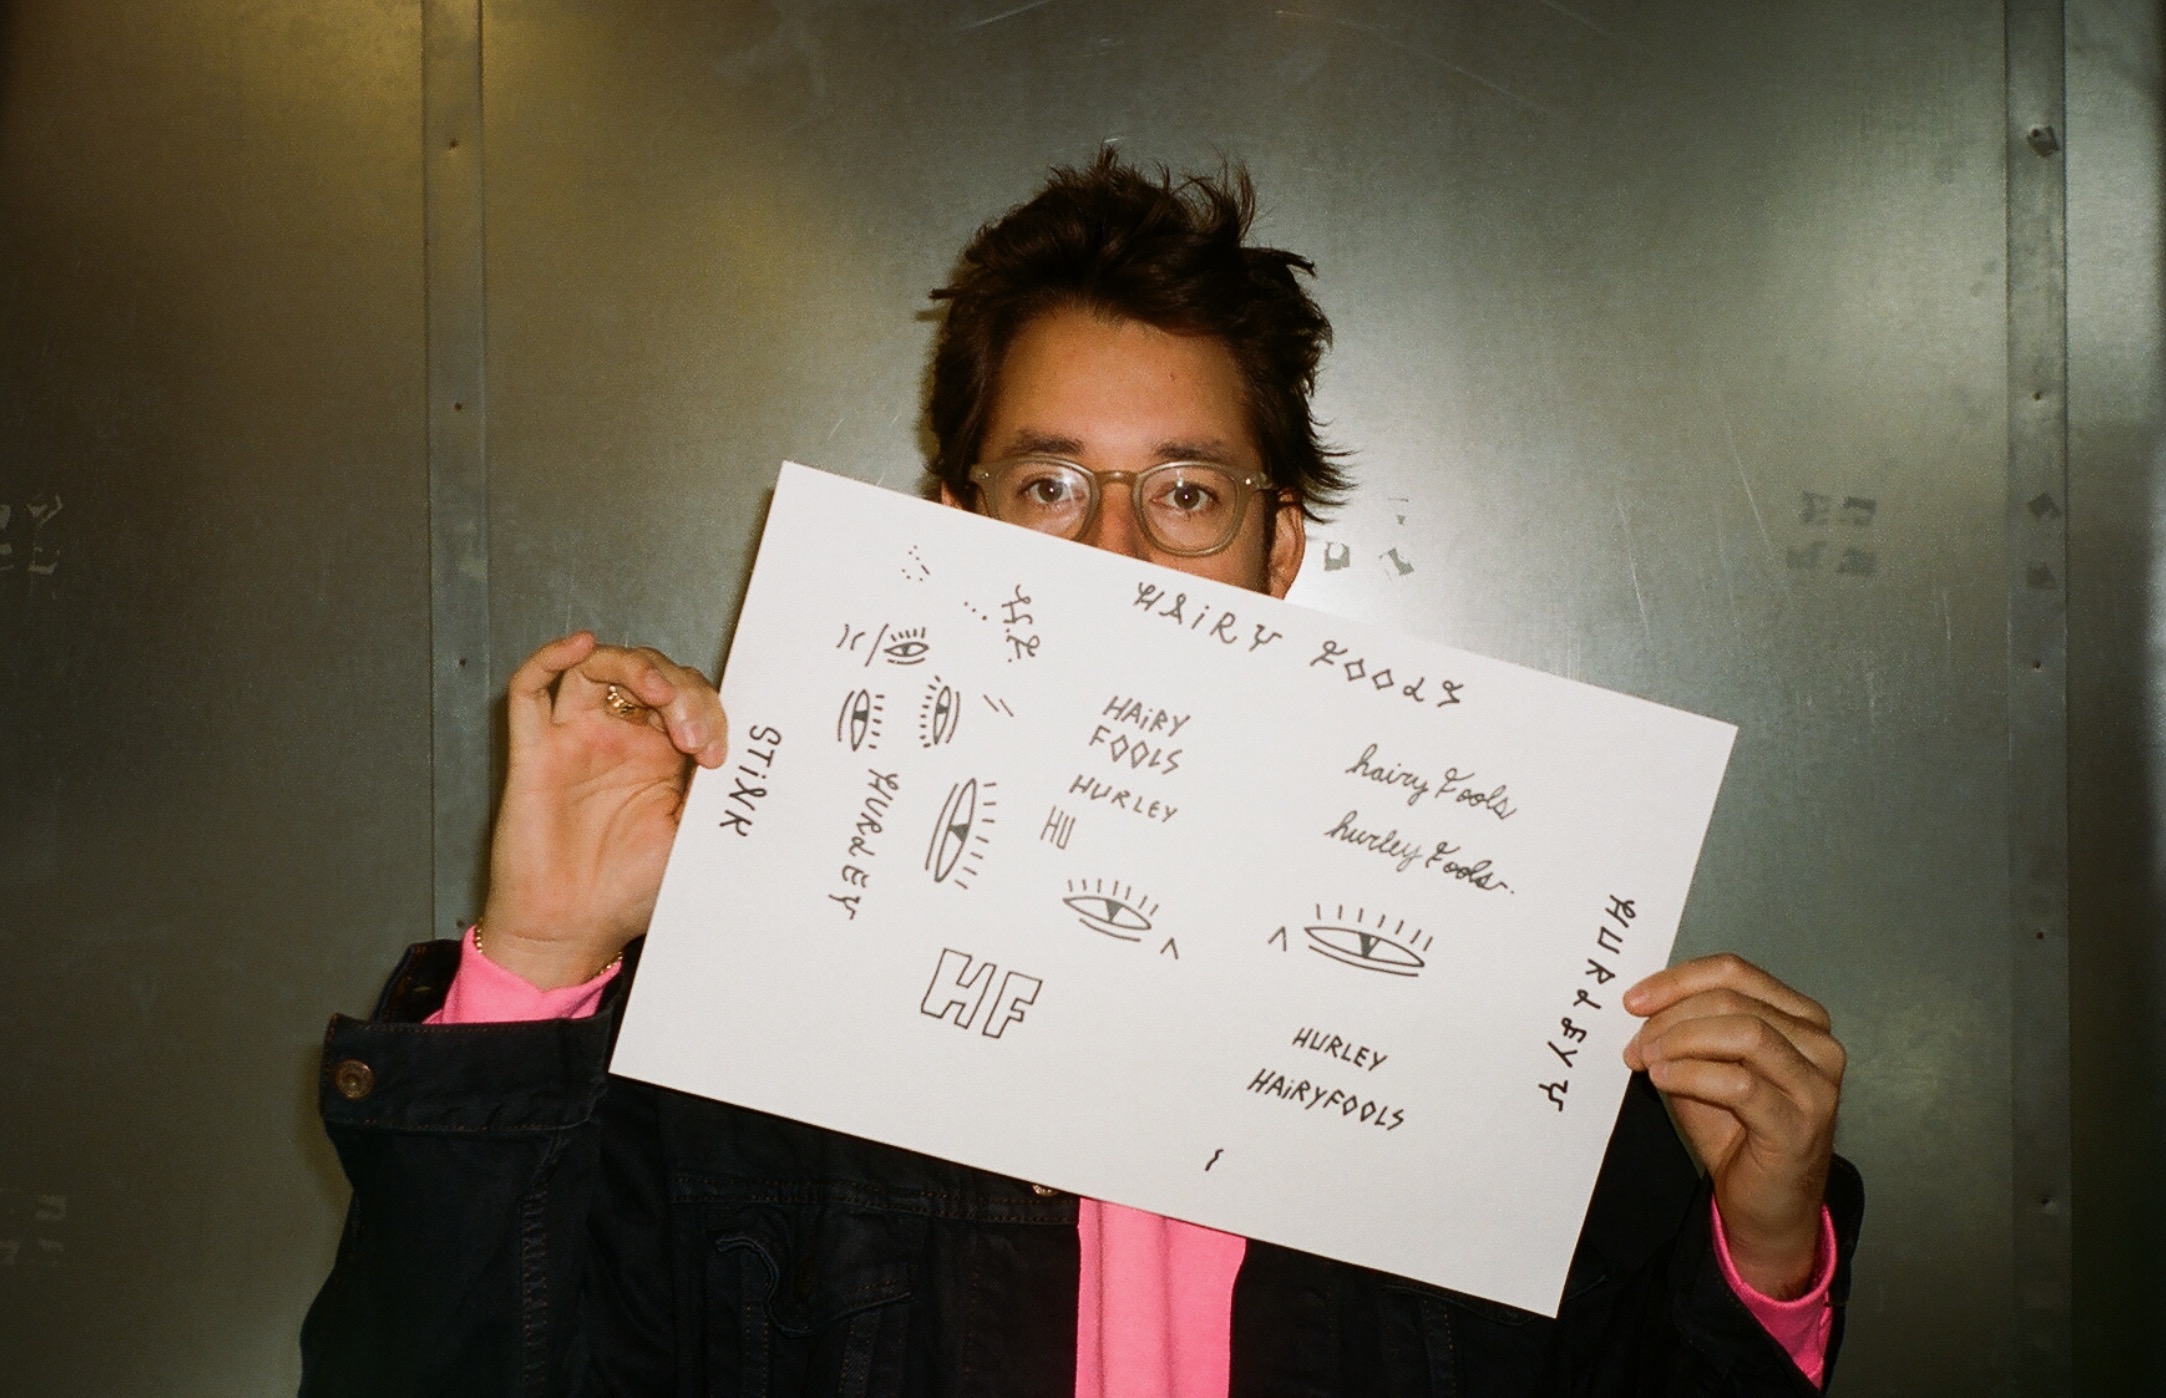 HAiRY FOOLS
H.F.
HAiRY
FOOLS
HURLEY
HU
hairy Fools
hurley Fools.
STiNK
HURLEY
HURLEY
HF
HURLEY
HAiRYFOOLS